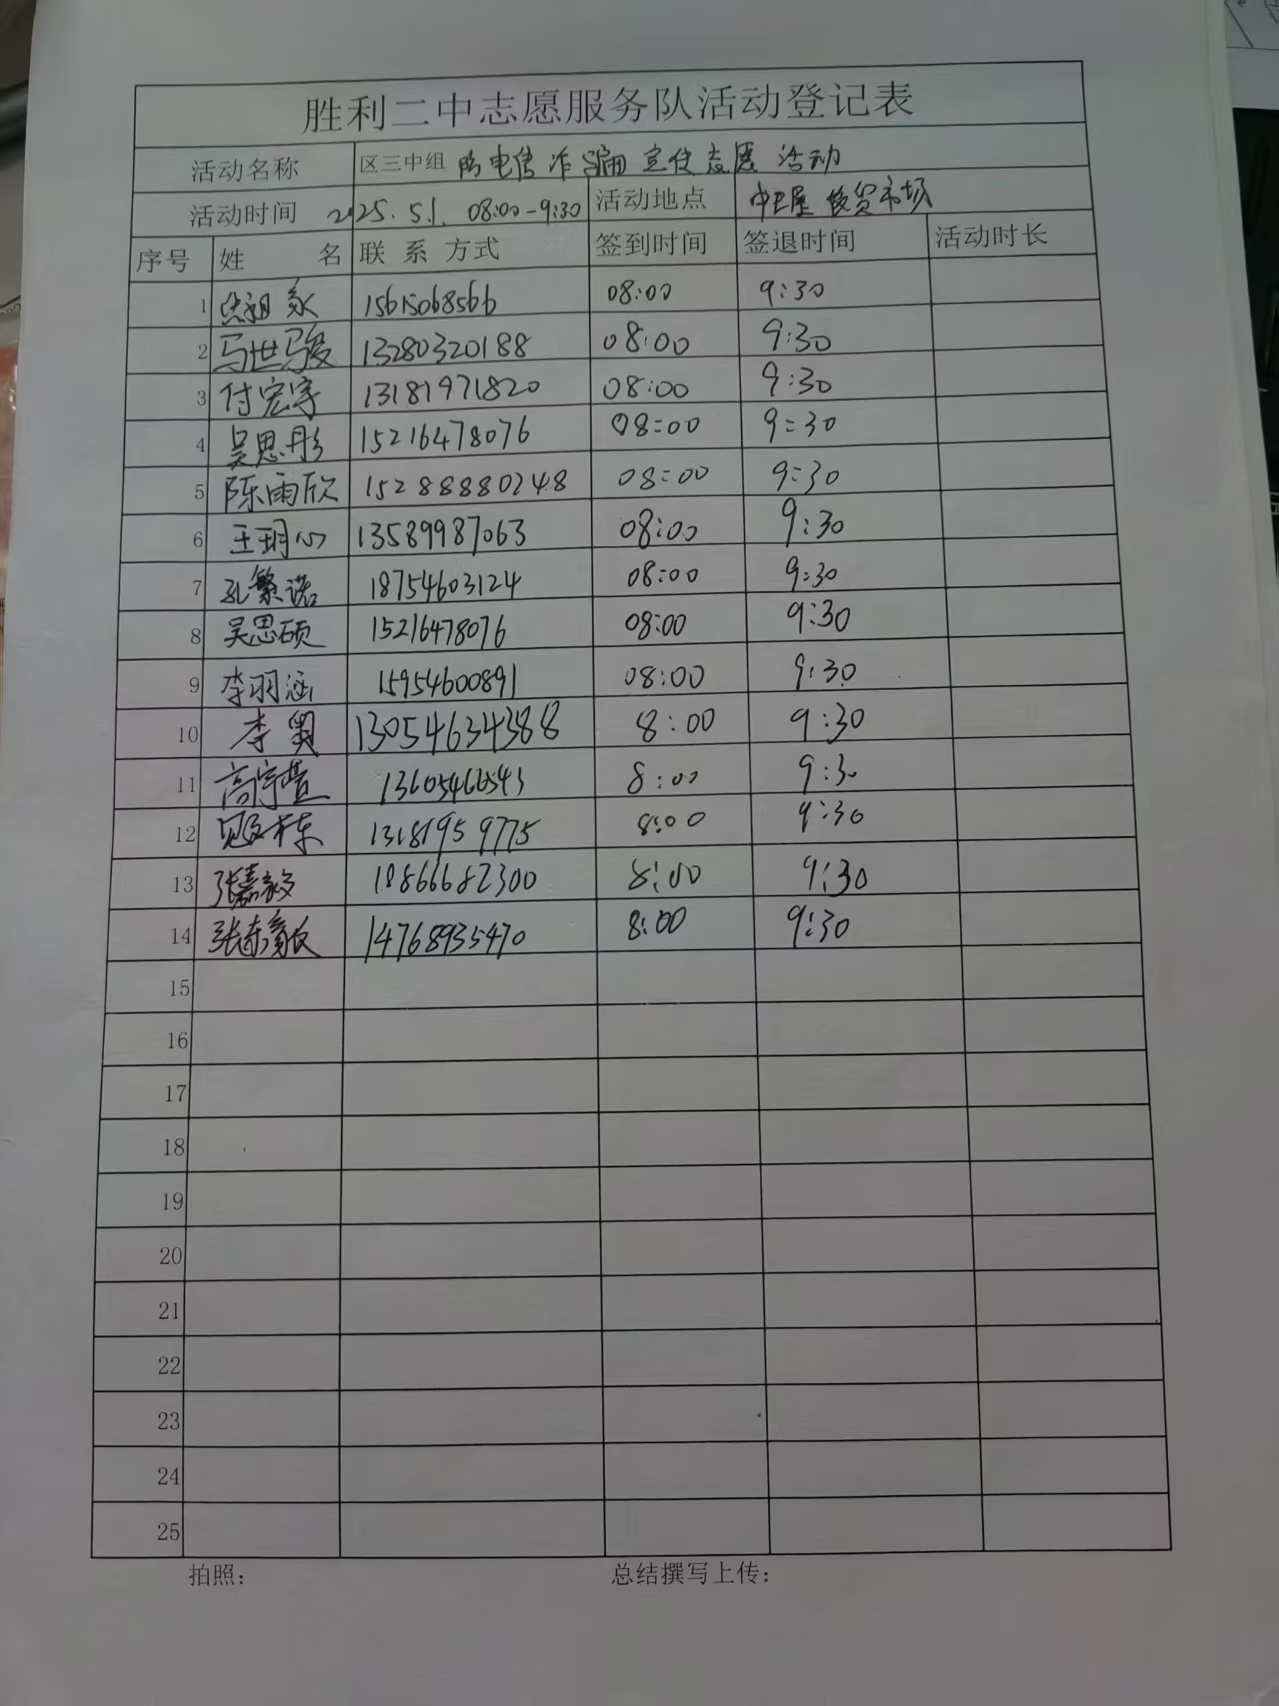 胜利二中志愿服务队活动登记表
活动名称 区三中组 防电信诈骗宣传志愿活动
活动时间 2025.5.1. 08:00-9:30 活动地点 贸市场
序号 姓名 联系方式 签到时间 签退时间 活动时长
1 15615068566 08:00 9:30
2 马世骏 13280320188 08:00 9:30
3 付宏宇 13181971820 08:00 9:30
4 吴思彤 15216478076 08:00 9:30
5 陈雨欣 15288880248 08:00 9:30
6 王玥心 13589987063 08:00 9:30
7 孔繁诺 18754603124 08:00 9:30
8 吴思硕 15216478076 08:00 9:30
9 李羽涵 15954600891 08:00 9:30
10 李 13054634388 8:00 9:30
11 高宇萱 13605466543 8:00 9:30
12 13181959775 8:00 9:30
13 张嘉毅 18866682300 8:00 9:30
14 张 14768935470 8:00 9:30
15
16
17
18
19
20
21
22
23
24
25
拍照： 总结撰写上传：